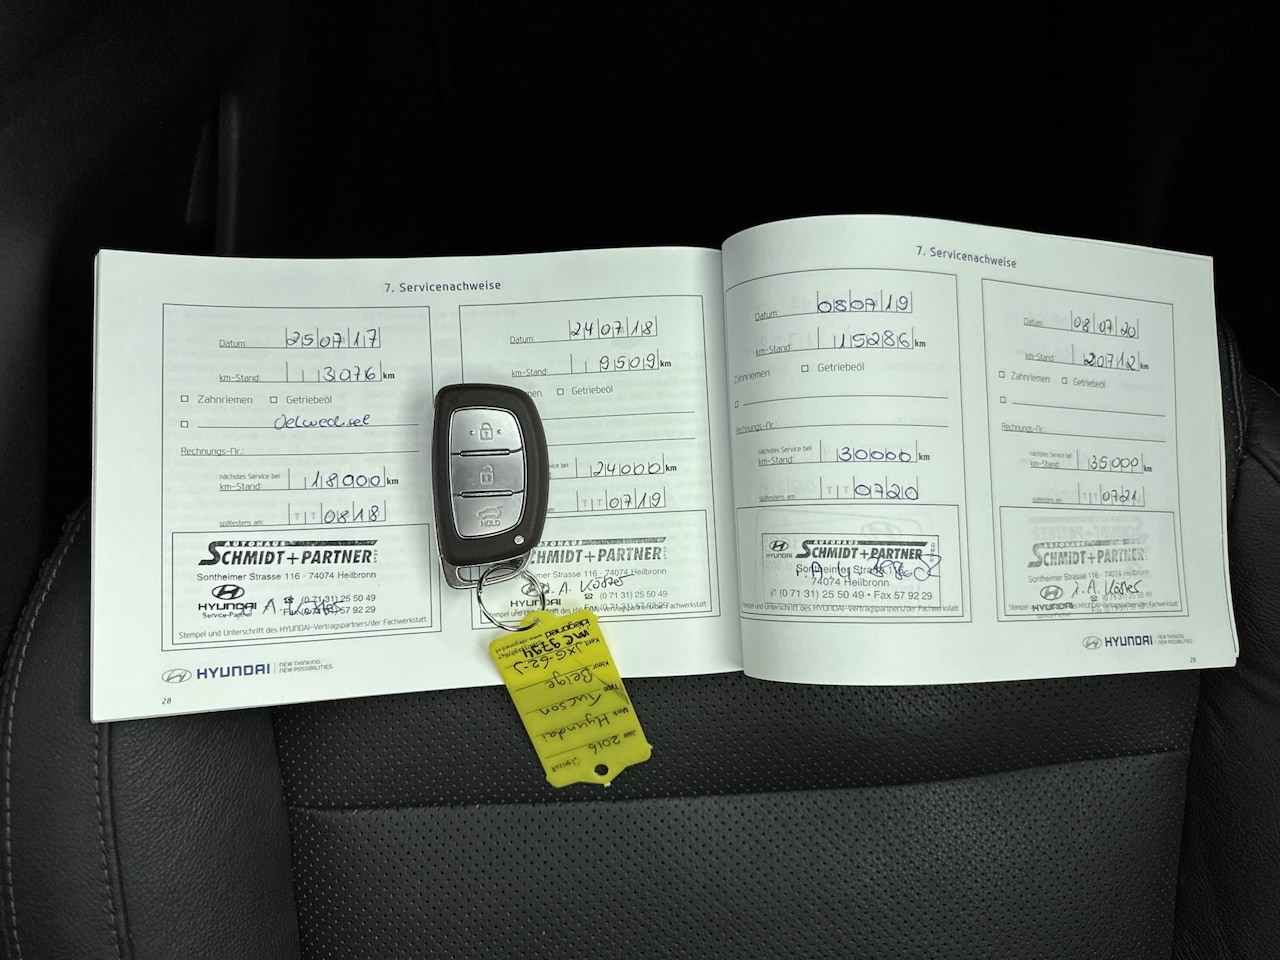 7. Servicenachweise
Datum: 25 07 17
km-Stand: 3076 km
Zahnriemen Getriebeöl
Oelwechsel
Rechnungs-Nr.:
nächstes Service bei
km-Stand: 18000 km
spätestens am: T T 08 18
AUTOHAUS
SCHMIDT+PARTNER
Sontheimer Strasse 116 · 74074 Heilbronn
HYUNDAI
Service-Partner
☎ (0 71 31) 25 50 49
57 92 29
Stempel und Unterschrift des HYUNDAI-Vertragspartners/der Fachwerkstatt
HYUNDAI
NEW THINKING.
NEW POSSIBILITIES.
28
Datum: 24 07 18
km-Stand: 9509 km
Getriebeöl
bei 24000 km
T T 07 19
SCHMIDT+PARTNER
Strasse 116 · 74074 Heilbronn
i. A. Köster
HYUNDAI
☎ (0 71 31) 25 50 49
der Fachwerkstatt
HOLD
7. Servicenachweise
Datum: 08 07 19
km-Stand: 15286 km
Zahnriemen Getriebeöl
Rechnungs-Nr.:
nächstes Service bei
km-Stand: 30000 km
spätestens am: T T 07 20
AUTOHAUS
HYUNDAI SCHMIDT+PARTNER
Sontheimer Strasse 116
74074 Heilbronn
✆ (0 71 31) 25 50 49 • Fax 57 92 29
Stempel und Unterschrift des HYUNDAI-Vertragspartners/der Fachwerkstatt
Datum: 08 07 20
km-Stand: 20712 km
Zahnriemen Getriebeöl
Rechnungs-Nr.:
nächstes Service bei
km-Stand: 35000 km
spätestens am: T T 07 21
AUTOHAUS
SCHMIDT+PARTNER
Sontheimer Strasse 116 · 74074 Heilbronn
HYUNDAI
i. A. Köster
Stempel und Unterschrift des HYUNDAI-Vertragspartners/der Fachwerkstatt
HYUNDAI
NEW THINKING.
NEW POSSIBILITIES.
29
Jaar 2016
Merk Hyundai
Type Tucson
Kleur Beige
Kent. JXG-62-J
MC 9794